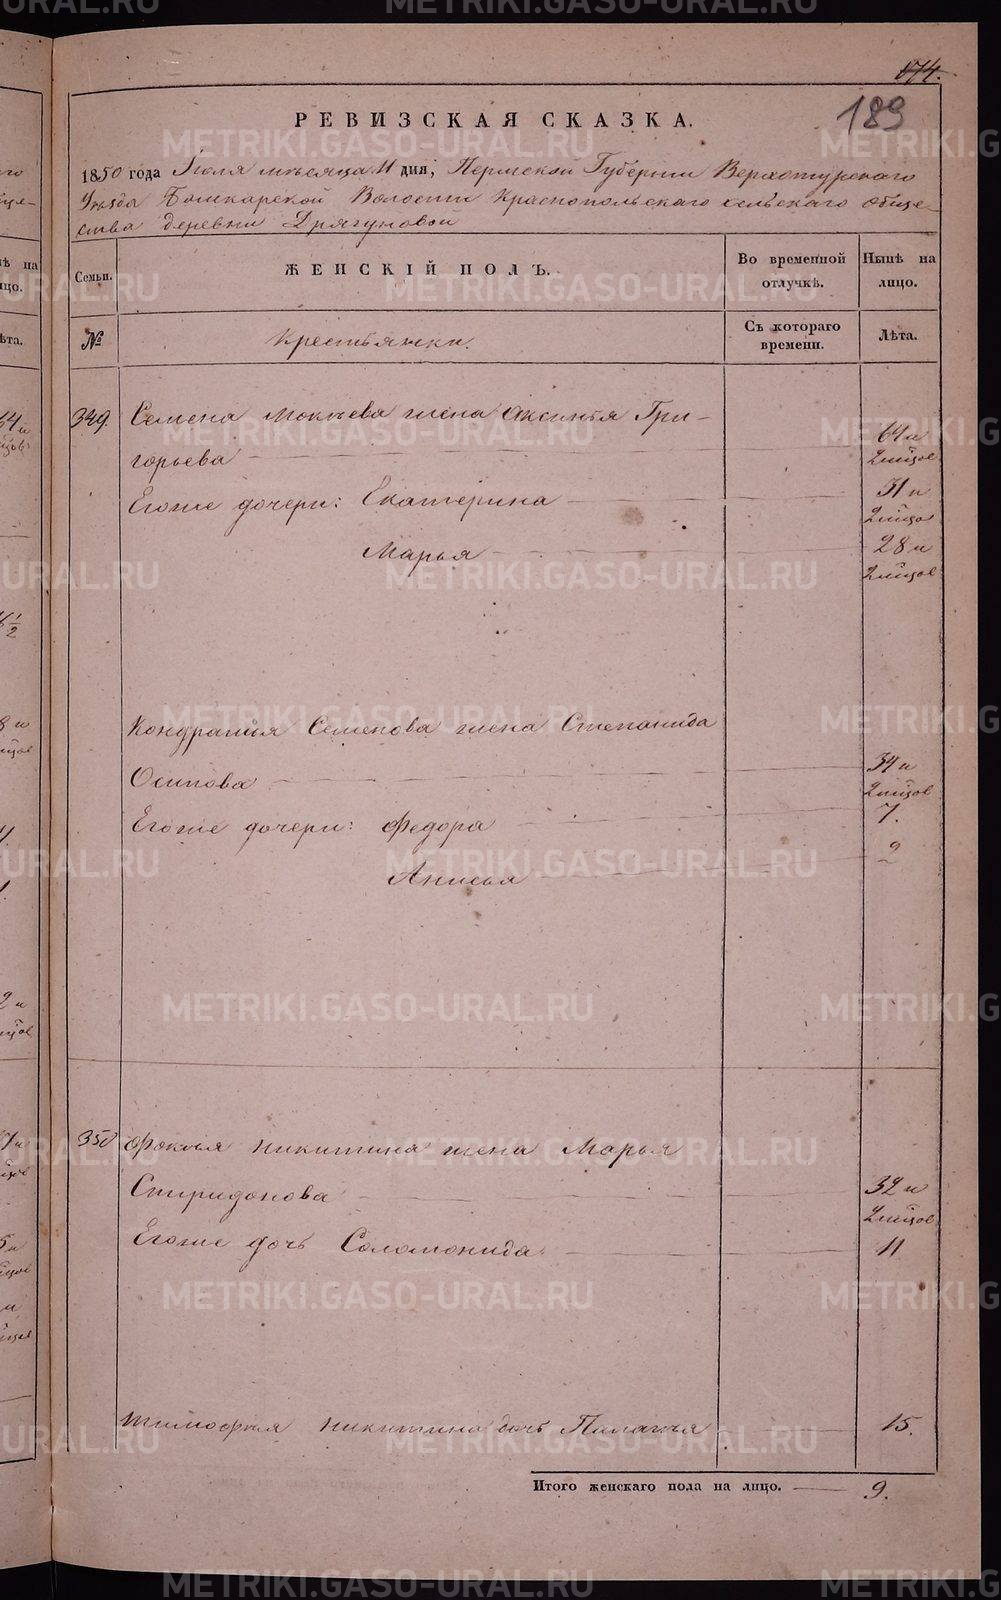 174.
189
РЕВИЗСКАЯ СКАЗКА.
1850 года Іюля мѣсяца 11 дня, Пермской Губерніи Верхотурскаго
Уѣзда Башкарской Волости Краснопольскаго сельскаго обще-
ства деревни Дрягуновой
Семьи.
ЖЕНСКІЙ ПОЛЪ.
Во временной отлучкѣ.
Нынѣ на лицо.
№
Крестьянки.
Съ котораго времени.
Лѣта.
349. Семена Мокѣева жена Аксинья Гри-
горьева 64 и 2 мѣцов
Егоже дочери: Екатерина 31 и 2 мѣцов
Марья 28 и 2 мѣцов
Кондратья Семенова жена Степанида
Осипова 34 и 2 мѣцов
Егоже дочери: Федора 7.
Анисья 2
350 Фокѣя Никитина жена Марья
Спиридонова 32 и 2 мѣцов
Егоже дочь Соломонида 11
Тимофѣя Никитина дочь Палагѣя 15.
Итого женскаго пола на лицо. 9.
METRIKI.GASO-URAL.RU